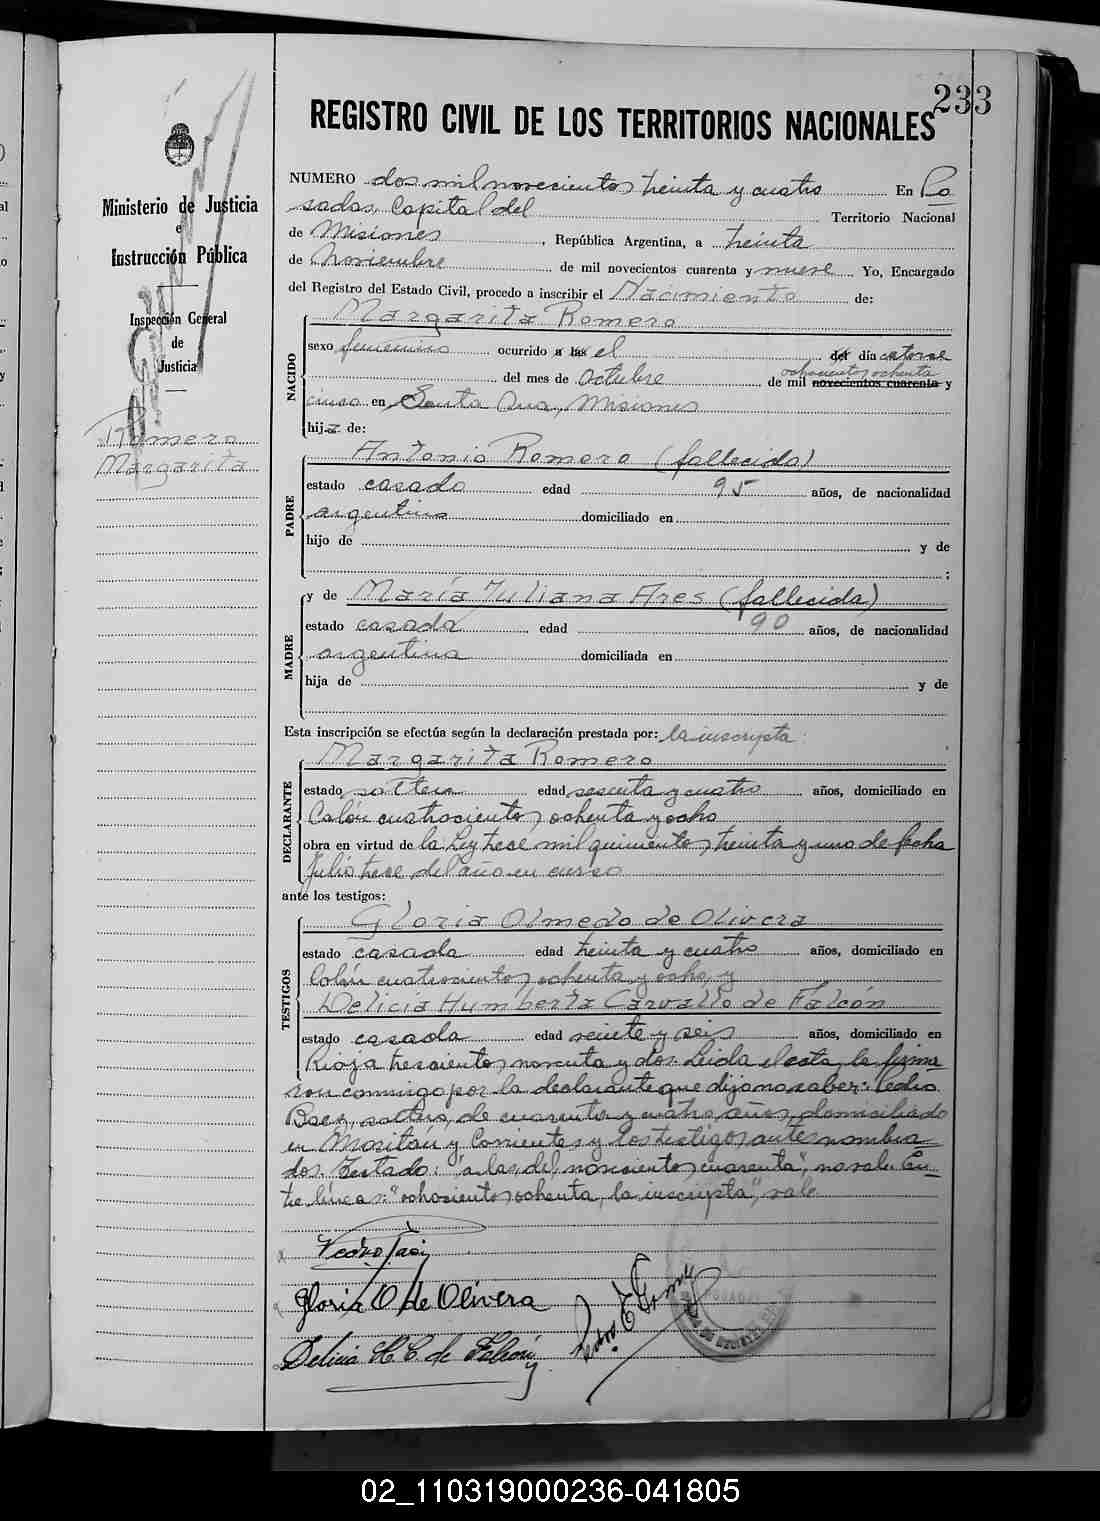 233
REGISTRO CIVIL DE LOS TERRITORIOS NACIONALES
Ministerio de Justicia
e
Instrucción Pública
Inspección General
de
Justicia
Romero
Margarita
NUMERO dos mil novecientos treinta y cuatro En Po
sadas, Capital del Territorio Nacional
de Misiones, República Argentina, a treinta
de Noviembre de mil novecientos cuarenta y nueve Yo, Encargado
del Registro del Estado Civil, procedo a inscribir el Nacimiento de:
NACIDO
Margarita Romero
sexo femenino ocurrido a las el del día catorce
ochocientos ochenta
del mes de Octubre de mil novecientos cuarenta y
cinco en Santa Ana, Misiones
hija de:
PADRE
Antonio Romero (fallecido)
estado casado edad 95 años, de nacionalidad
argentino domiciliado en
hijo de y de
;
MADRE
y de María Juliana Ares (fallecida)
estado casada edad 90 años, de nacionalidad
argentina domiciliada en
hija de y de
Esta inscripción se efectúa según la declaración prestada por: la inscripta
DECLARANTE
Margarita Romero
estado soltera edad sesenta y cuatro años, domiciliado en
Colón cuatrocientos ochenta y ocho
obra en virtud de la Ley trece mil quinientos treinta y uno de fecha
Julio trece del año en curso
ante los testigos:
TESTIGOS
Gloria Olmedo de Olivera
estado casada edad treinta y cuatro años, domiciliado en
Colón cuatrocientos ochenta y ocho, y
Delicia Humberta Carvallo de Falcón
estado casada edad veinte y seis años, domiciliado en
Rioja trescientos noventa y dos. Leida el acta, la firma-
ron conmigo por la declarante que dijo no saber: Pedro
Baez, soltero, de cuarenta y cuatro años, domiciliado
en Monitau y Corrientes y los testigos antes nombra-
dos. Testado: "a las, del, novecientos cuarenta", no vale. En-
tre líneas: "ochocientos ochenta, la inscripta", vale
Gloria O de Olivera
Delicia H. C. de Falcón
02_110319000236-041805